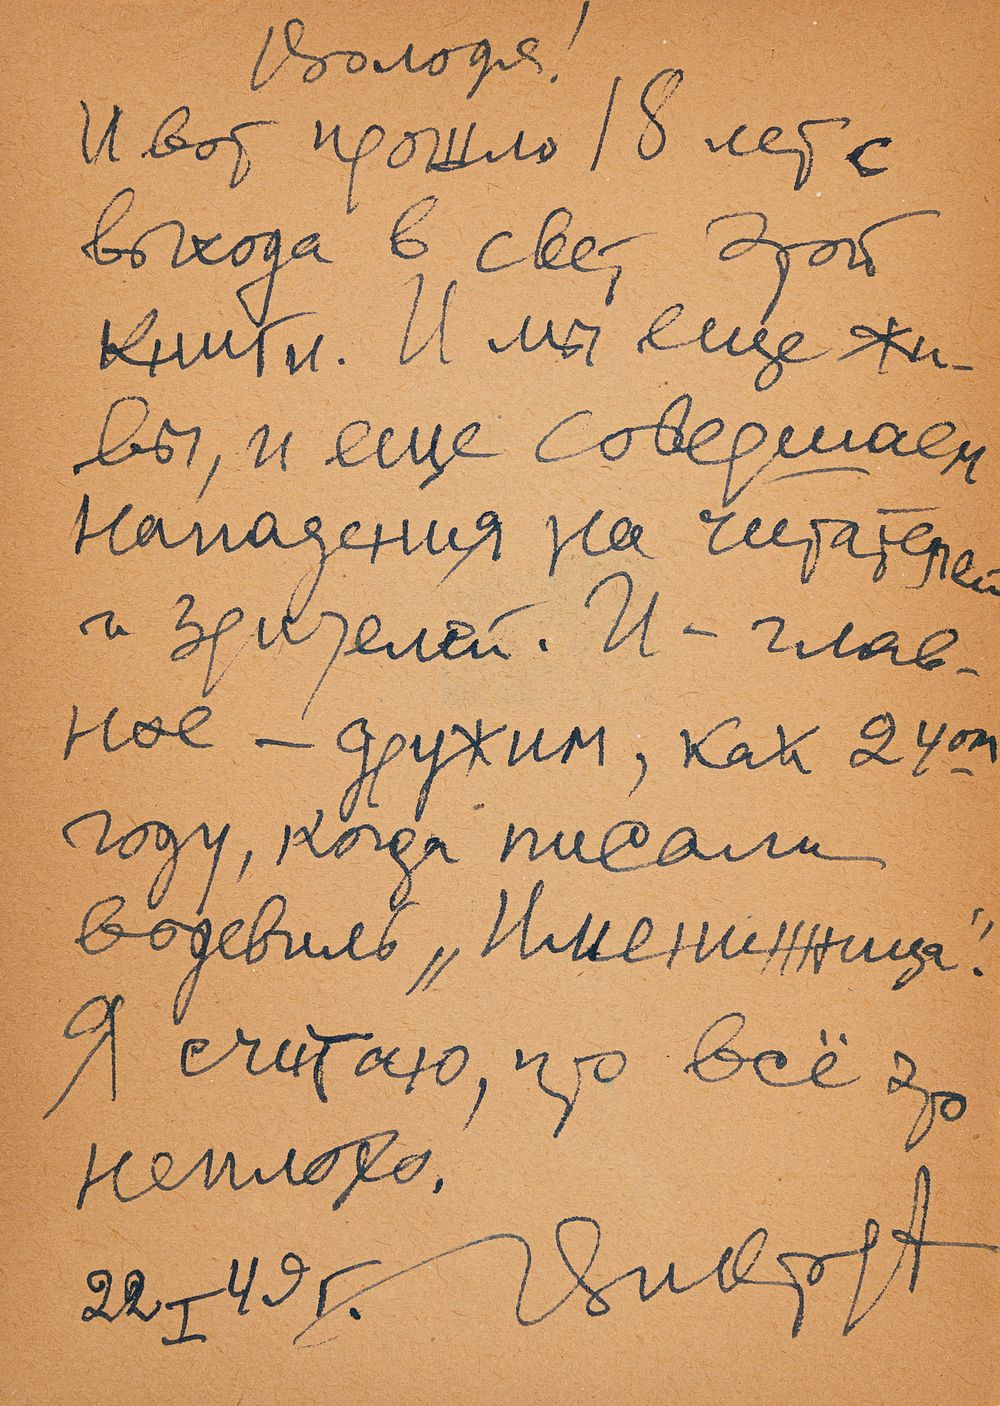 Володя!
И вот прошло 18 лет с
выхода в свет этой
книги. И мы еще жи-
вы, и еще совершаем
нападения на читателей
и зрителей. И – глав-
ное – дружим, как 24ом
году, когда писали
водевиль „Именинница".
Я считаю, что всё это
неплохо.
22 I 49 г. Виктор А